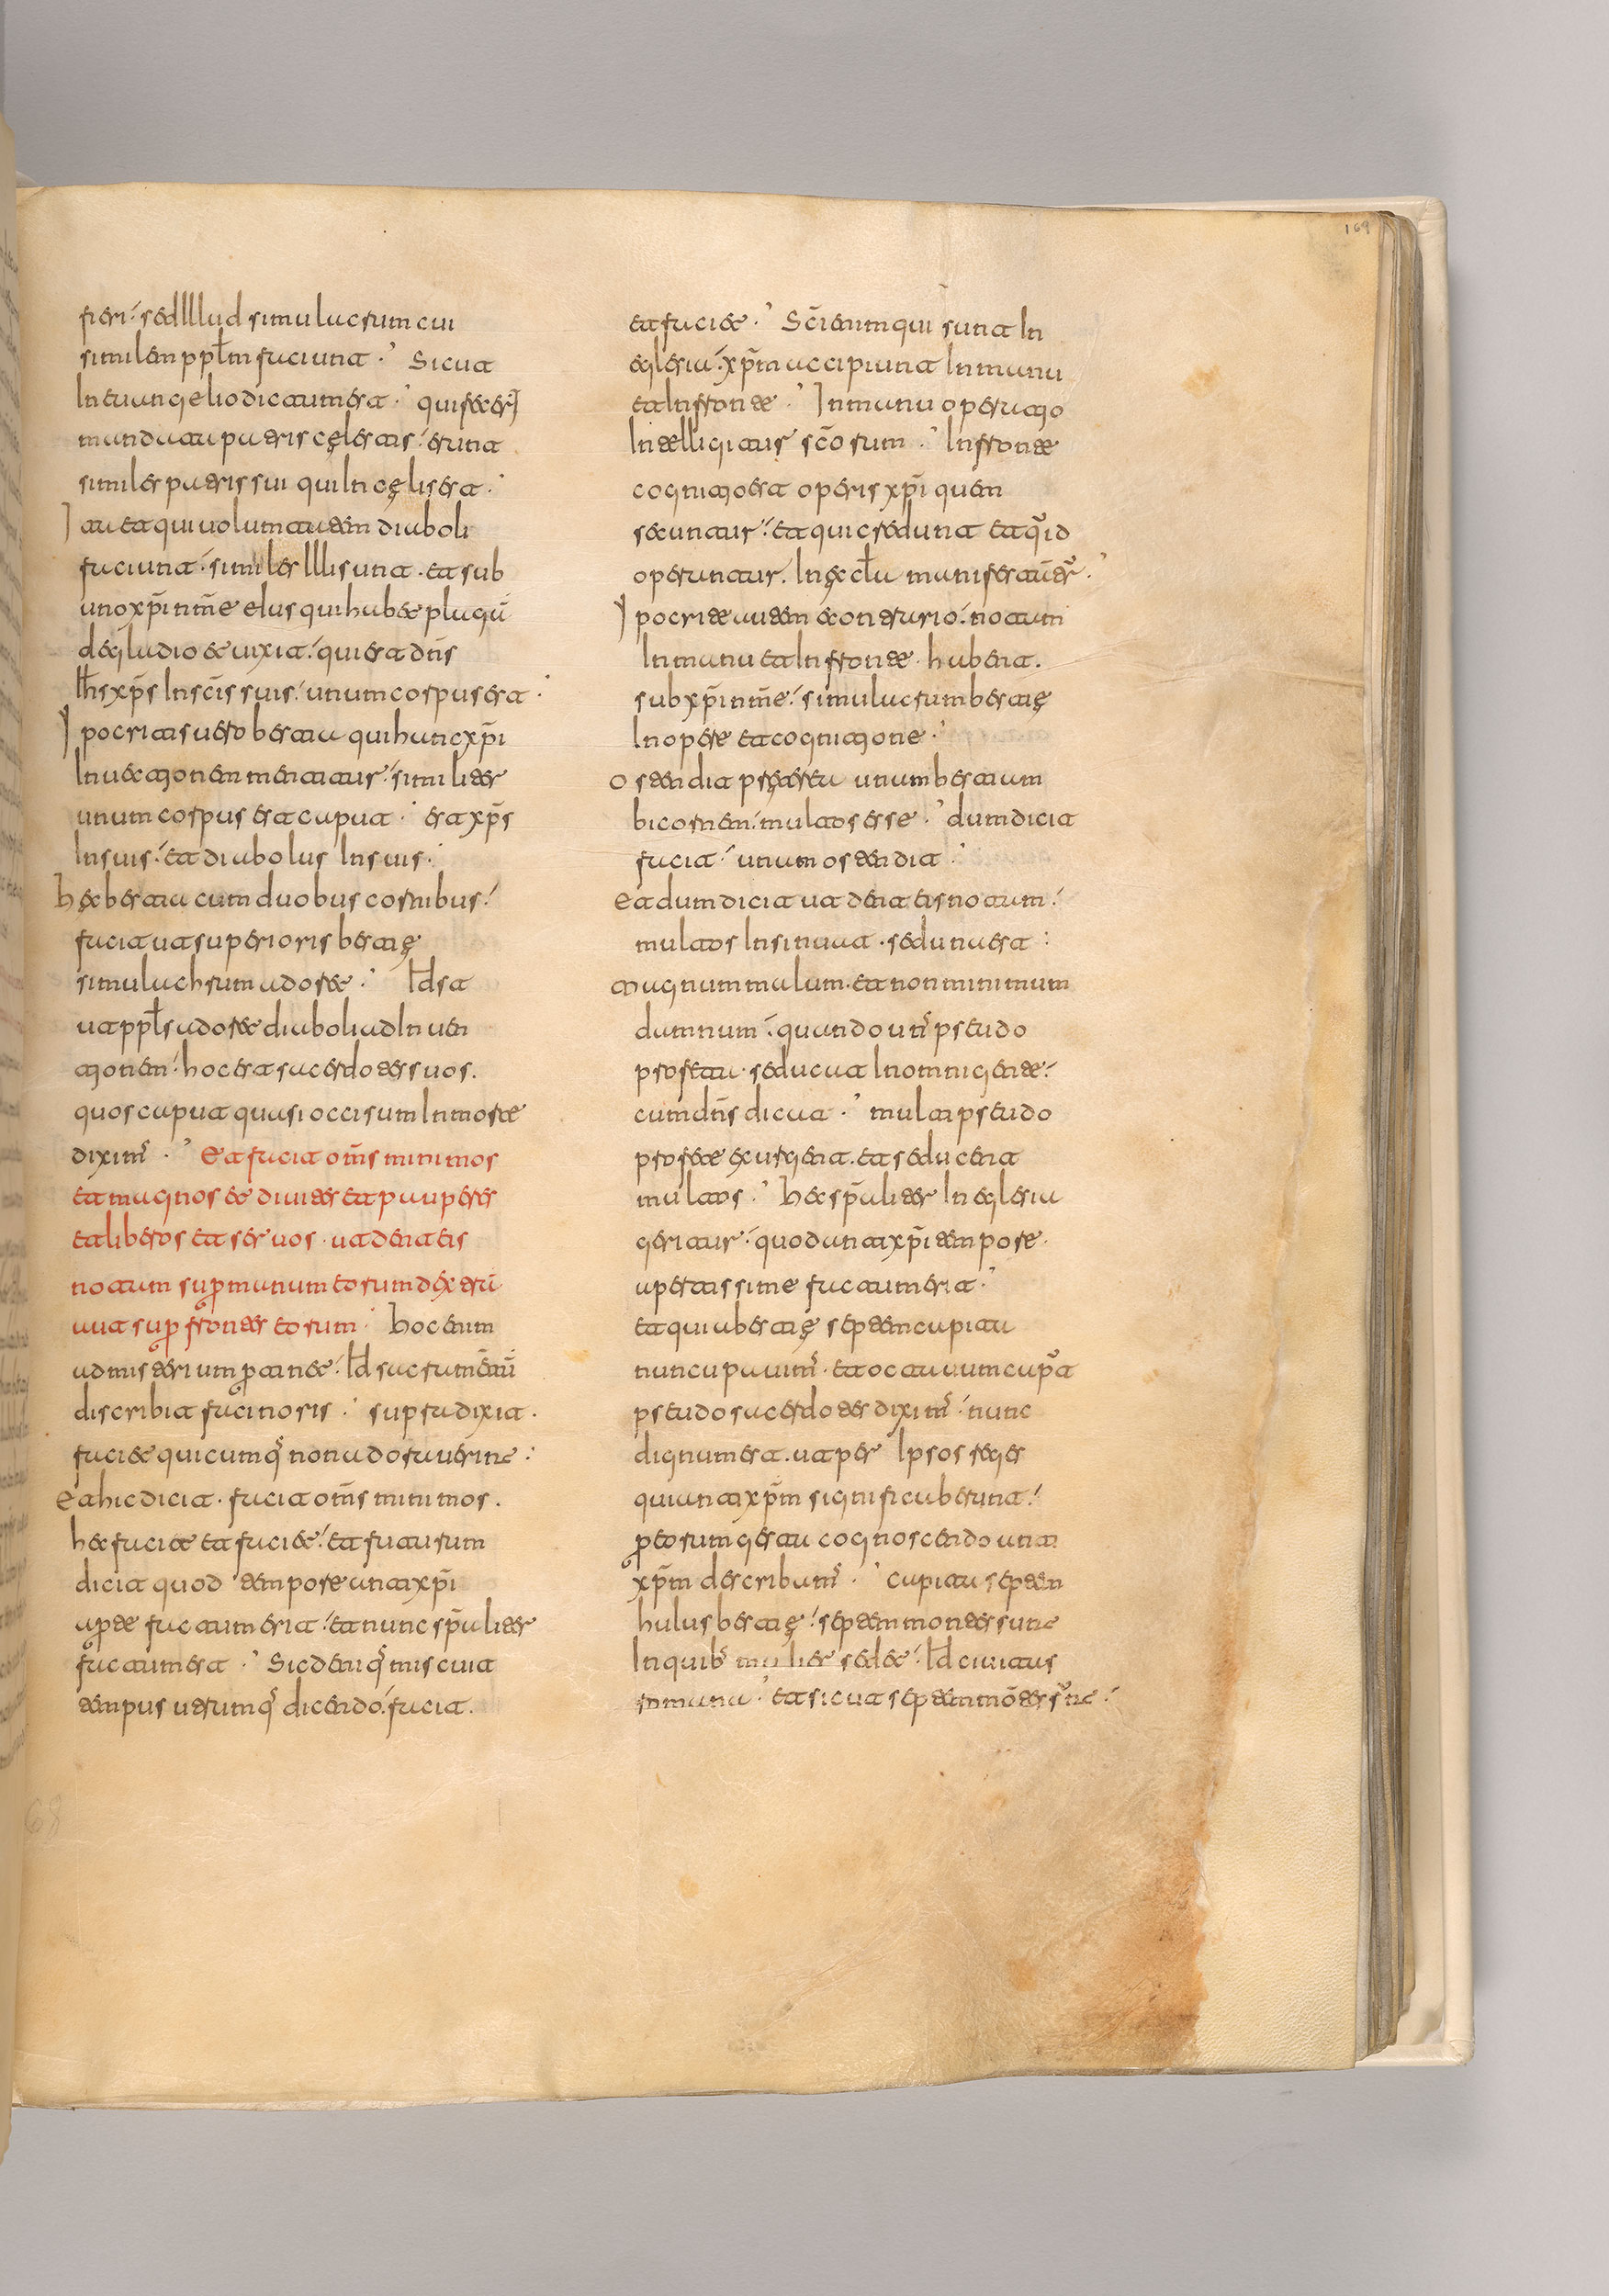 fieri: sed Illud simulacrum cui
similem pplm faciunt. Sicut
In euangelio dictum est. qui fecerī
mandata patris cęlestis: erunt
similes patris sui qui In cęlis est.
Ita et qui uolumtatem diaboli
faciunt. similes Illi sunt. et sub
uno xp̄i nm̄e eius qui habet plagā
de gladio et uixit: qui est dn̄s
Ihs xp̄s In scīs suis: unum corpus est.
Ypocritas uero bestia qui hunc xp̄i
Inuectionem mentitur: similiter
unum corpus est caput. est xp̄s
In suis: et diabolus In suis.
Hęc bestia cum duobus cornibus:
facit ut superioris bestię
simulachrum adoret. Id est
ut ppls adoret diaboli ad Inuen
tionem: hoc est sacerdotes suos.
quos caput quasi occisum In morte
dixim̄. Et facit om̄s minimos
et magnos et diuites et pauperes
et liberos et seruos. ut dent eis
notam sup manum eorum dexterā
aut sup frontes eorum. Hoc enim
ad misterium ptinet. Id sacramentū
discribit facinoris. supra dixit.
faciet quicumq non adorauerint:
Et hic dicit. facit om̄s minimos.
hec faciet et faciet: et futurum
dicit quod tempore antixp̄i
apte factum erit: et nunc sp̄aliter
factum est. Sic deniq miscuit
tempus uerumq dicendo. facit.
et faciet. Scī enim qui sunt In
eglesia: xp̄m accipiunt In manu
et In fronte. In manu operatio
Intelligitur scōrum. In fronte
cognitio est operis xp̄i quem
secuntur: et qui credunt et qd
operantur. In ęccla manifestantur.
Ypocrite autem e contrario: notam
In manu et In fronte habent.
sub xp̄i nm̄e: simulacrum bestię
In opere et cognitione.
Ostendit pręterea unum bestiam
bicornem: multos esse. dum dicit
facit: unum ostendit.
Et dum dicit ut dent eis notam:
multos Insinuat. sed una est:
Magnum malum. et non minimum
damnum: quando un̄s pseudo
profeta. seducat In omni gente:
cum dn̄s dicat. multi pseudo
profete exurgent. et seducent
multos. Hec sp̄aliter In eglesia
geritur: quod antixp̄i tempore.
apertissime factum erit.
et quia bestię septem capita
nuncupauim̄. et octauum caput
pseudo sacerdotes dixim̄: nunc
dignum est. ut per Ipsos reges
qui antixp̄m significaberunt:
p eorum gesta cognoscendo anti
xp̄m describam̄. capita septem
huius bestię: septem montes sunt
In quibs mulier sedet: Id ciuitas
romana. et sicut septem mōtes sūnt: